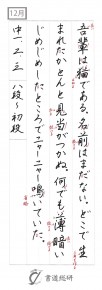 12月
吾輩は猫である。名前はまだない。どこで生
まれたかとんと見当がつかぬ。何でも薄暗い
じめじめしたところでニャーニャー鳴いていた。
中一、二、三 八段〜初段
書道総研